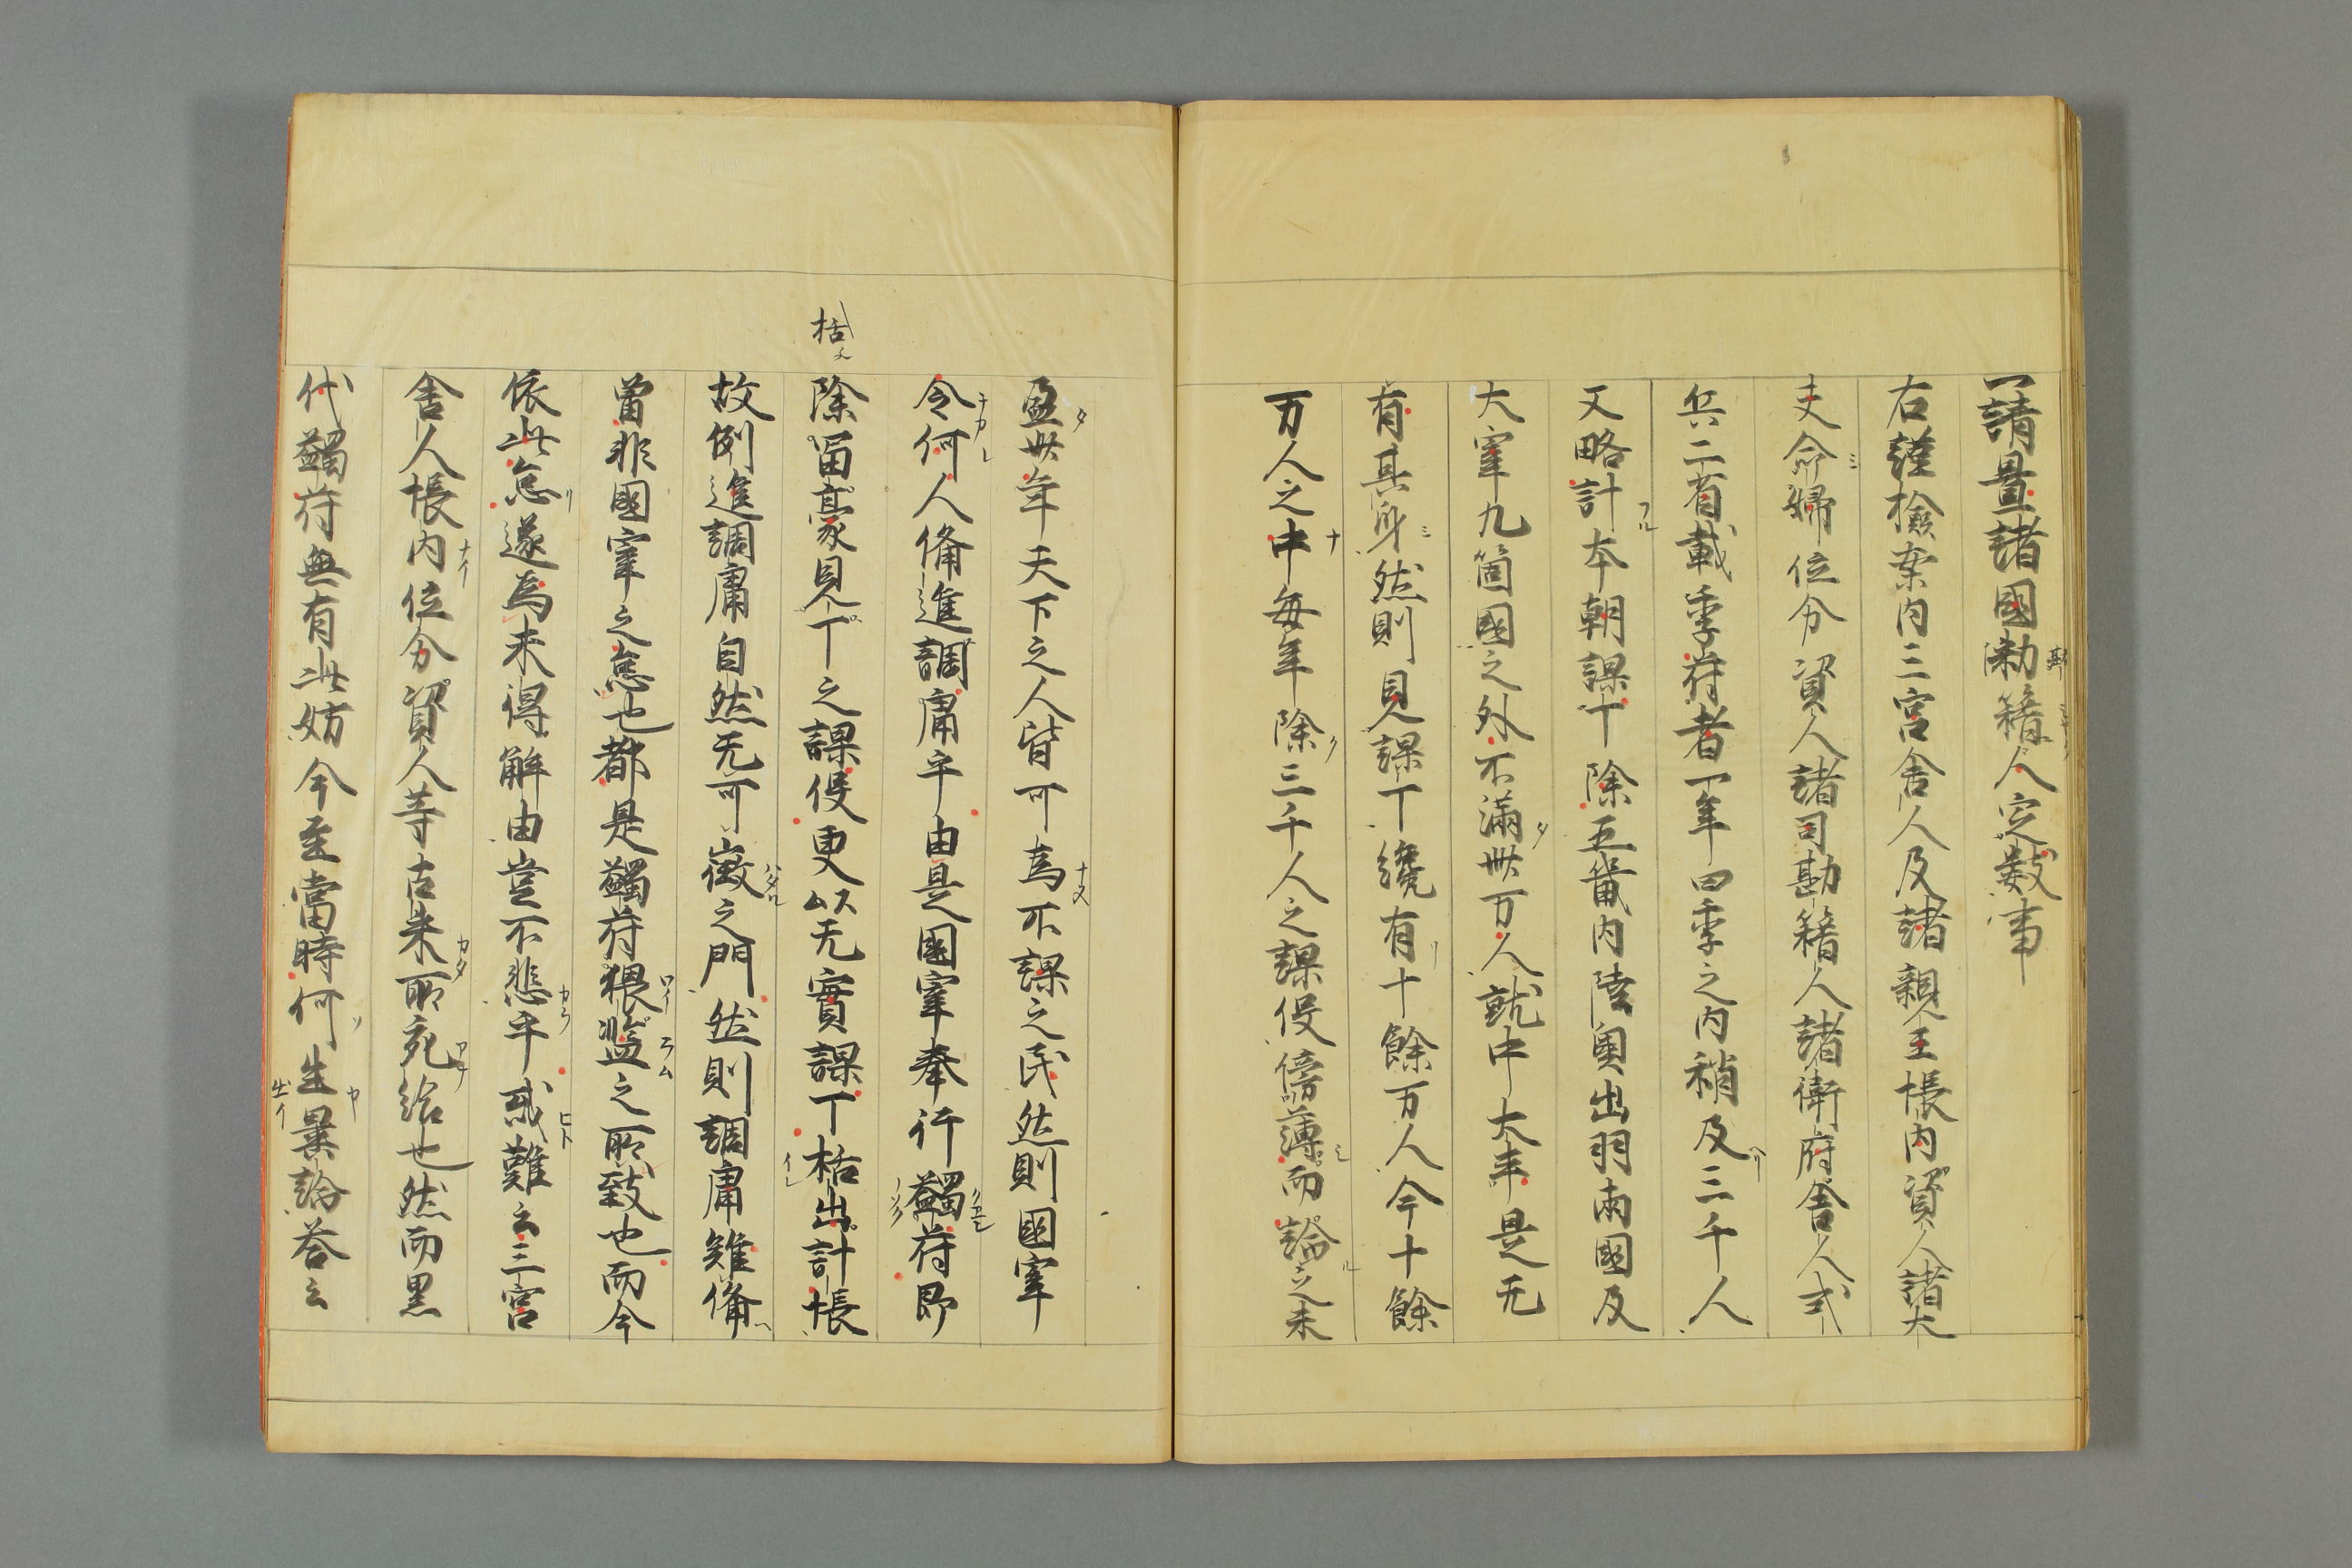 一請置諸國勘籍人定数事
右謹檢案内三宮舎人及諸親王帳内資人諸大
夫命婦位分資人諸司勘籍人諸衛府舎人式
兵二省載季苻者一年四季之内稍及三千人
又略計本朝課丁除五畿内陸奥出羽両國及
大宰九箇國之外不滿卌万人就中大半是无
有其身然則見課丁纔有十餘万人今十餘
万人之中毎年除三千人之課役傍薄而論之未
盈卌年天下之人皆可為不課之民然則國宰
令何人備進調庸乎由是國宰奉行蠲苻即
括イ
除留豪見丁之課役更以无實課丁括出計帳
故例進調庸自然无可徴之門然則調庸雖備
曽非國宰之怠也都是蠲苻猥監之所致也而今
依此怠遂為未得解由豈不悲乎或難云三宮
舎人帳内位分資人等古来所宛給也然而累
代蠲苻無有此妨今至當時何生異論荅云